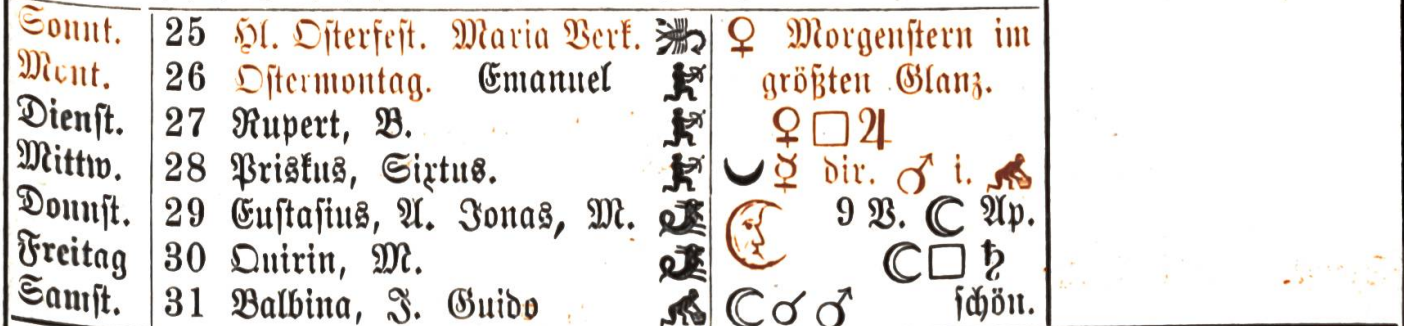 Sonnt. 25 Hl. Osterfest. Maria Verk. ♀ Morgenstern im
Mont. 26 Ostermontag. Emanuel größten Glanz.
Dienst. 27 Rupert, B. ♀ □ ♃
Mittw. 28 Priskus, Sixtus. ☿ dir. ♂ i.
Donnst. 29 Eustasius, A. Jonas, M. 9 V. ☾ Ap.
Freitag 30 Quirin, M. ☾ □ ♄
Samst. 31 Balbina, J. Guido ☾ ☌ ♂ schön.